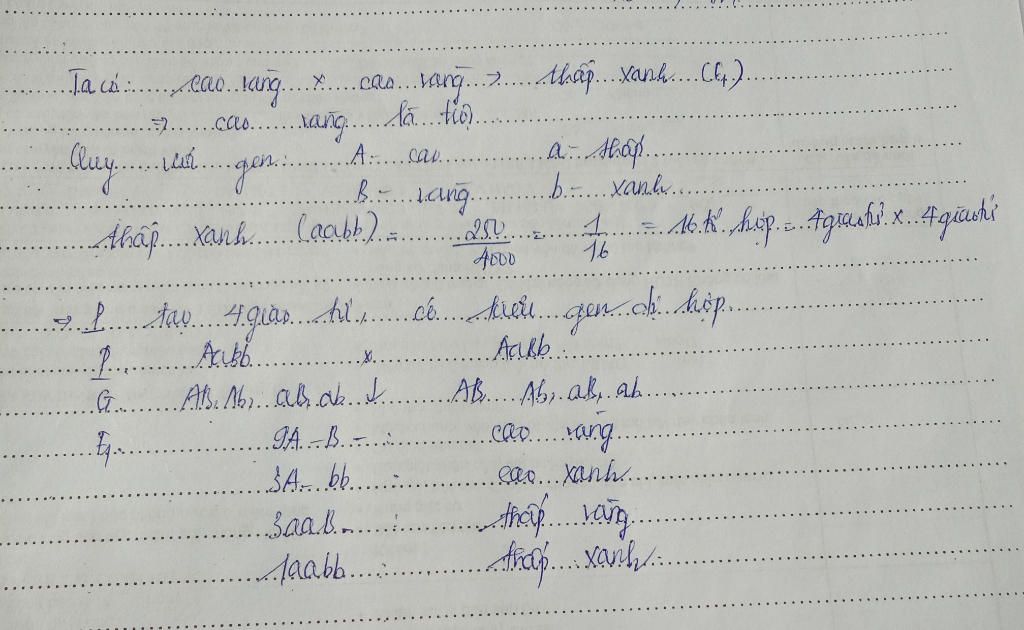 Ta có: cao vàng × cao vàng → thấp xanh (F1)
⇒ cao vàng là trội
Quy ước gen: A - cao a - thấp
B - vàng b - xanh
thấp xanh (aabb) = 250/4000 = 1/16 = 16 tổ hợp = 4 giao tử × 4 giao tử
⇒ P tạo 4 giao tử, có kiểu gen dị hợp.
P. AaBb × AaBb
G. AB, Ab, aB, ab ↓ AB Ab, aB, ab
F1. 9A-B- : cao vàng
3A-bb : cao xanh
3aaB- : thấp vàng
1aabb : thấp xanh.